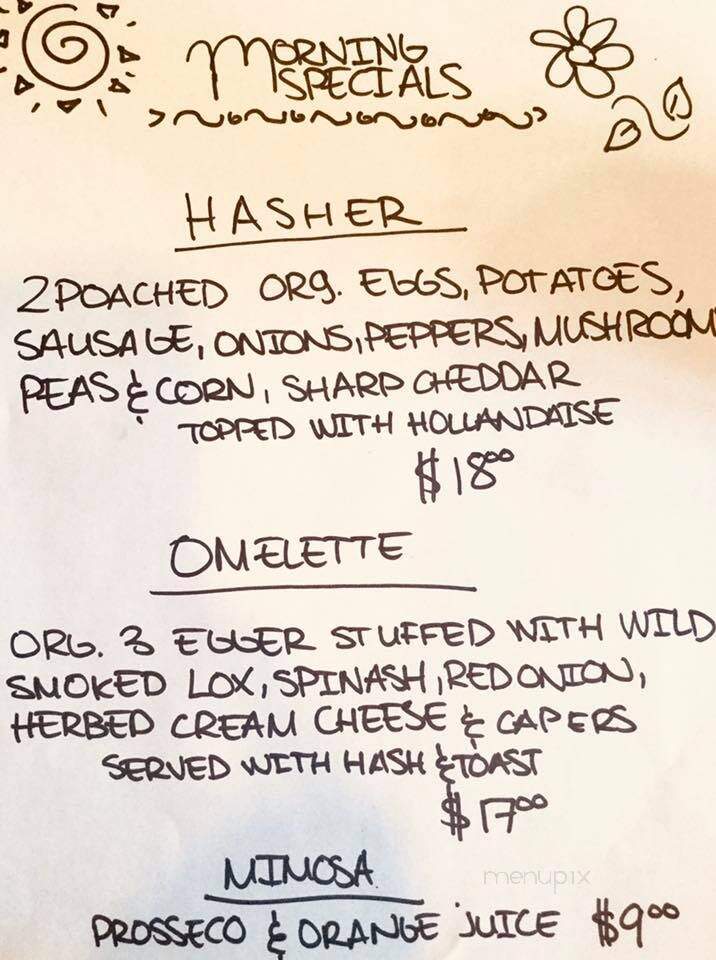 MORNING
SPECIALS
HASHER
2 POACHED ORG. EGGS, POTATOES,
SAUSAGE, ONIONS, PEPPERS, MUSHROOM
PEAS & CORN, SHARP CHEDDAR
TOPPED WITH HOLLANDAISE
$18⁰⁰
OMELETTE
ORG. 3 EGGER STUFFED WITH WILD
SMOKED LOX, SPINASH, RED ONION,
HERBED CREAM CHEESE & CAPERS
SERVED WITH HASH & TOAST
$17⁰⁰
MIMOSA
menupix
PROSSECO & ORANGE JUICE $9⁰⁰